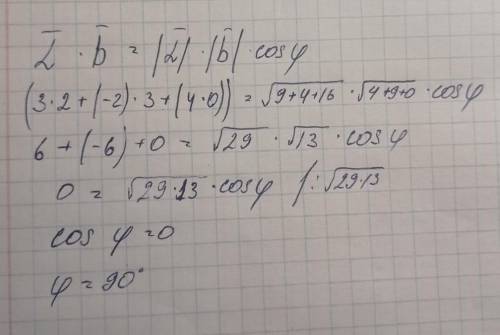 α̅ · b̅ = |α̅| · |b̅| · cosφ
(3·2+(-2)·3+(4·0)) = √9+4+16 · √4+9+0 · cosφ
6 + (-6) + 0 = √29 · √13 · cosφ
0 = √29·13 · cosφ /:√29·13
cos φ = 0
φ = 90°